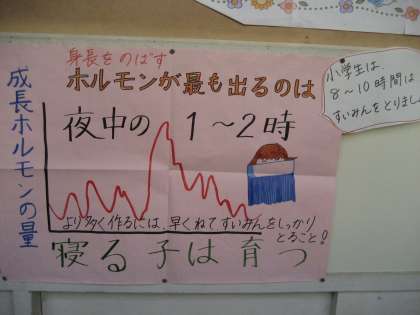 身長をのばす
ホルモンが最も出るのは
夜中の 1～2時
成長ホルモンの量
より多く作るには、早くねてすいみんをしっかり
とること!
寝る子は育つ
小学生は、
8～10時間は
すいみんをとりましょ